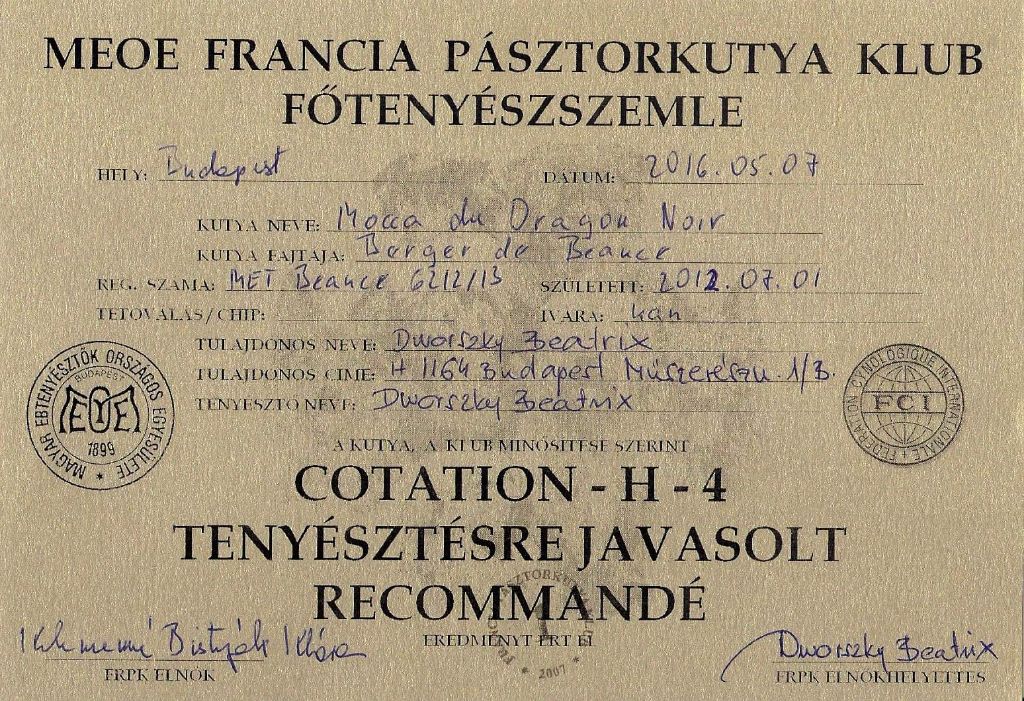 MEOE FRANCIA PÁSZTORKUTYA KLUB
FŐTENYÉSZSZEMLE
HELY: Budapest DÁTUM: 2016.05.07
KUTYA NEVE: Mocca du Dragon Noir
KUTYA FAJTÁJA: Berger de Beauce
REG. SZÁMA: MET Beauce 6212/13 SZÜLETETT: 2012.07.01
TETOVÁLÁS/CHIP: IVARA: kan
TULAJDONOS NEVE: Dworszky Beatrix
TULAJDONOS CÍME: H 1164 Budapest 1/B.
TENYÉSZTŐ NEVE: Dworszky Beatrix
MAGYAR EBTENYÉSZTŐK ORSZÁGOS EGYESÜLETE
BUDAPEST
MEOE
1899
FEDERATION CYNOLOGIQUE INTERNATIONALE
FCI
A KUTYA, A KLUB MINŐSÍTÉSE SZERINT
COTATION - H - 4
TENYÉSZTÉSRE JAVASOLT
RECOMMANDÉ
EREDMÉNYT ÉRT EL
2007
Klára
FRPK ELNÖK
Dworszky Beatrix
FRPK ELNÖKHELYETTES